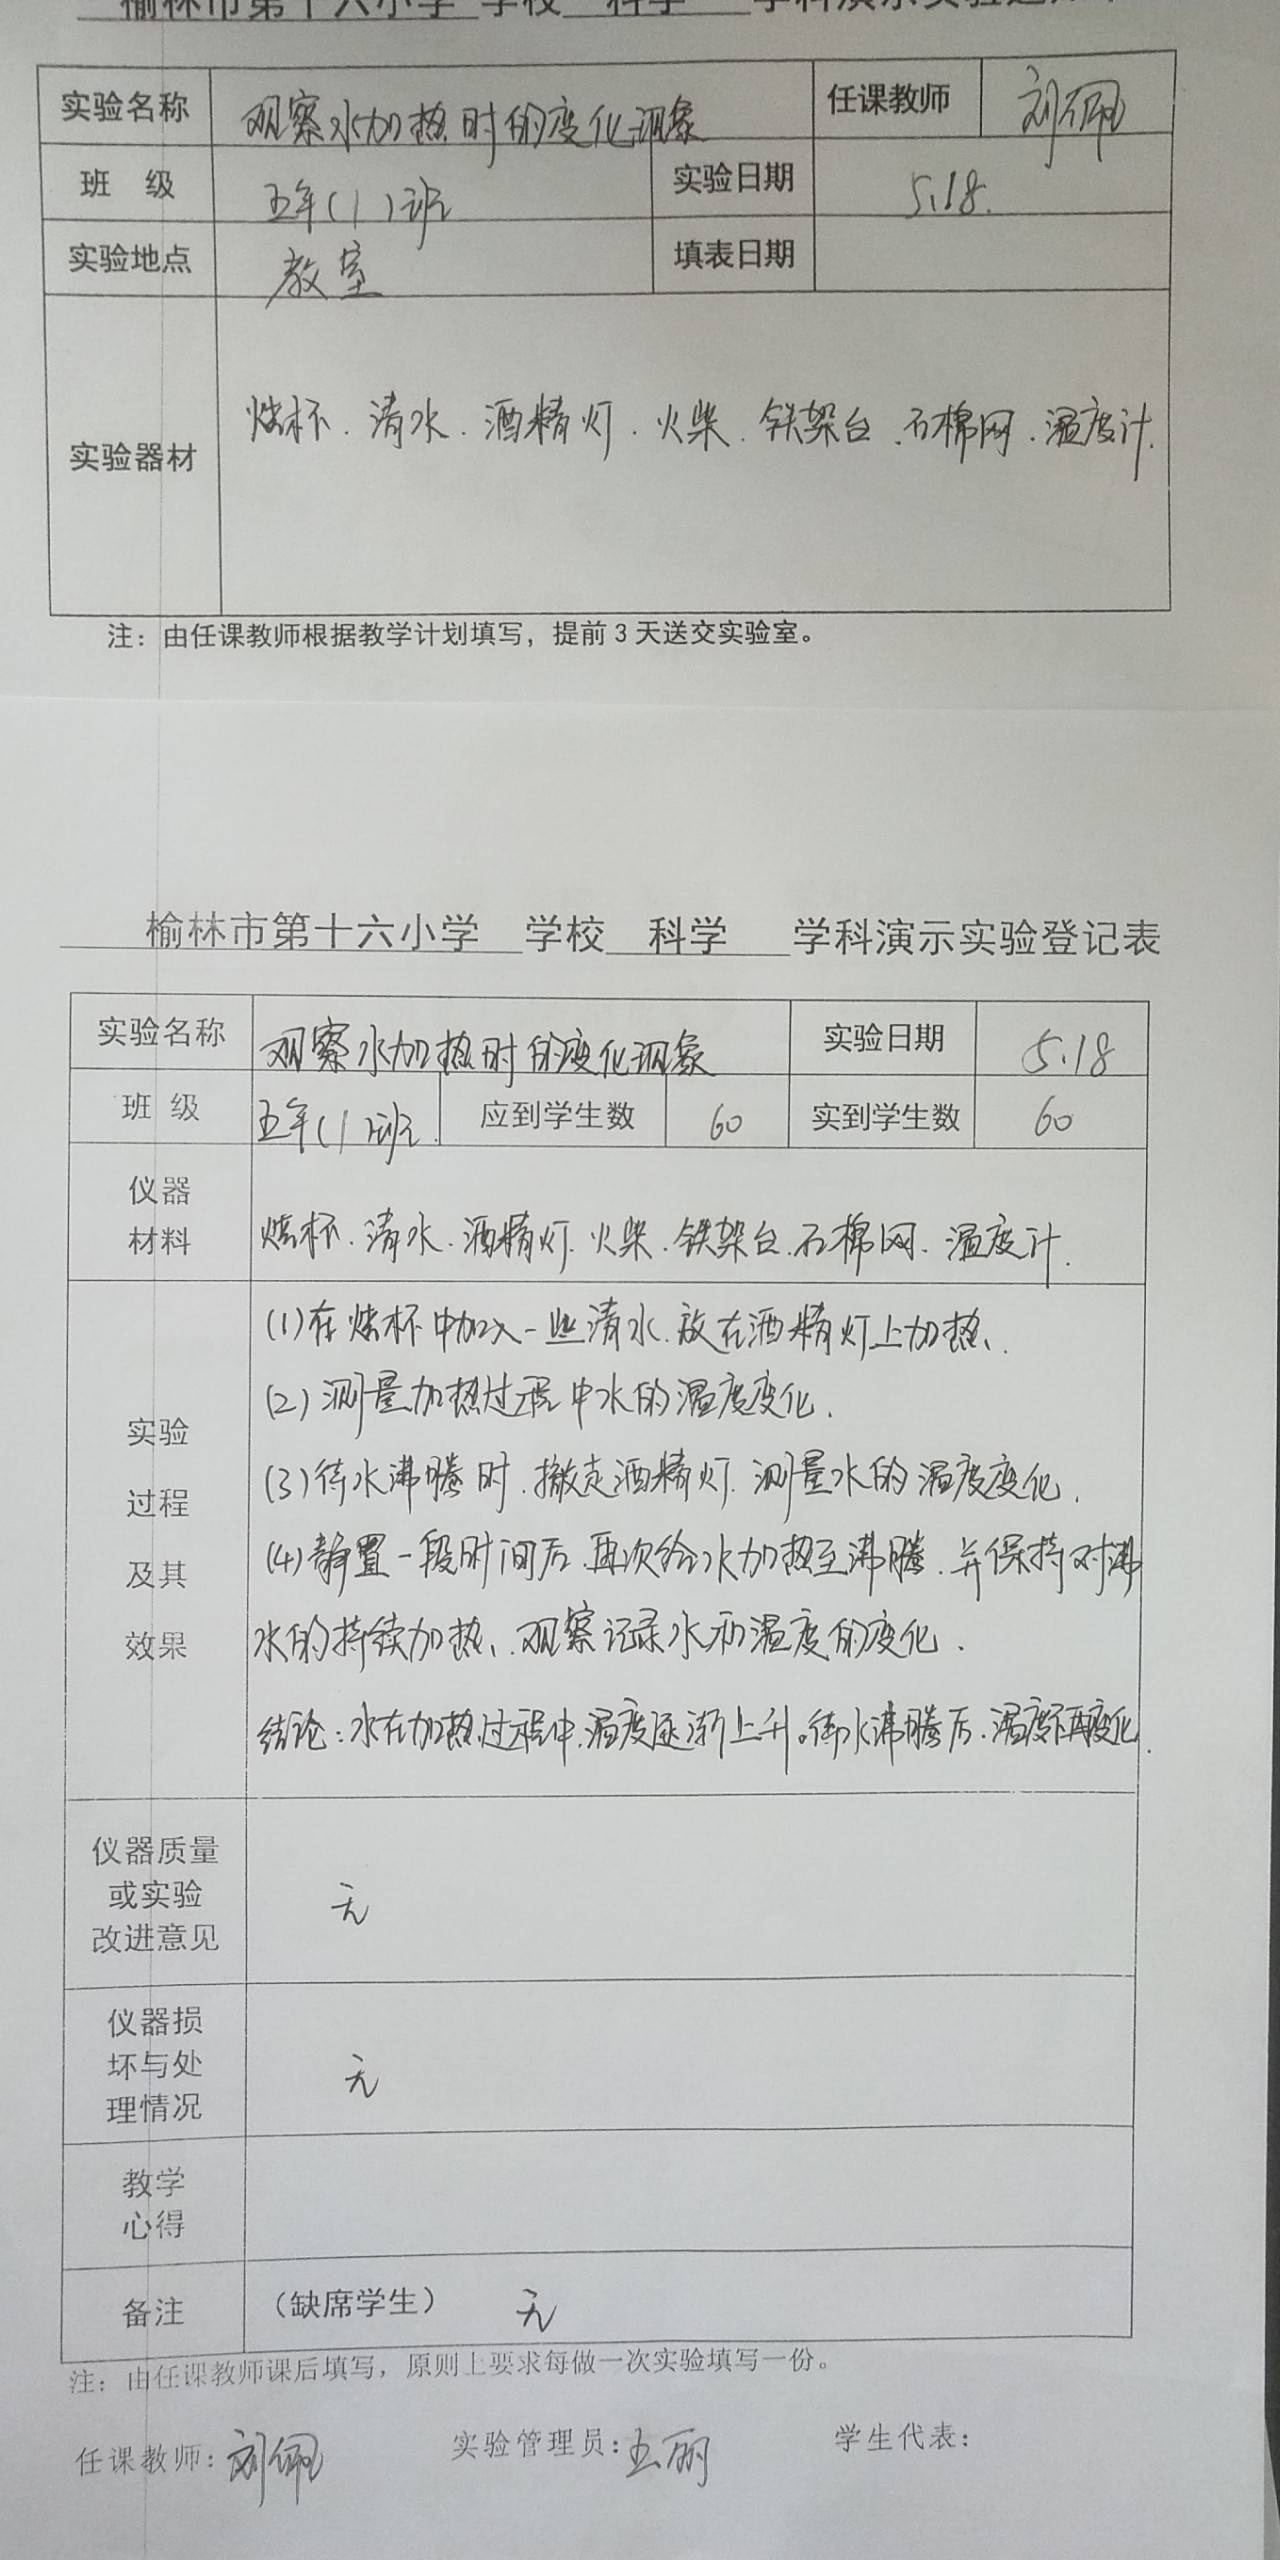 榆林市第十六小学 学校 科学 学科演示实验
实验名称 观察水加热时的变化现象 任课教师 刘佩
班 级 五年(1)班 实验日期 5.18.
实验地点 教室 填表日期
实验器材 烧杯．清水．酒精灯．火柴．铁架台．石棉网．温度计．
注：由任课教师根据教学计划填写，提前3天送交实验室。
榆林市第十六小学 学校 科学 学科演示实验登记表
实验名称 观察水加热时的变化现象 实验日期 5.18
班 级 五年(1)班. 应到学生数 60 实到学生数 60
仪器
材料
烧杯．清水．酒精灯．火柴．铁架台．石棉网．温度计．
实验
过程
及其
效果
(1)在烧杯中加入一些清水．放在酒精灯上加热．
(2)测量加热过程中水的温度变化．
(3)待水沸腾时．撤走酒精灯．测量水的温度变化．
(4)静置一段时间后．再次给水加热至沸腾．并保持对沸
水的持续加热．观察记录水和温度的变化．
结论：水在加热过程中．温度逐渐上升。待水沸腾后．温度不再变化．
仪器质量
或实验
改进意见
无
仪器损
坏与处
理情况
无
教学
心得
备注 （缺席学生） 无
注：由任课教师课后填写，原则上要求每做一次实验填写一份。
任课教师：刘佩 实验管理员：王丽 学生代表：